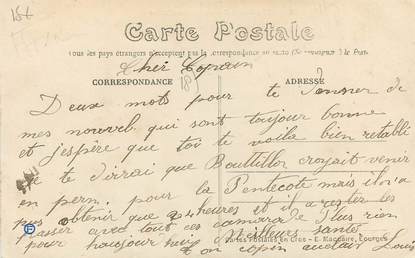 Carte Postale
Tous les pays étrangers n'acceptent pas la correspondance au recto
Cher Copain
CORRESPONDANCE
ADRESSE
Deux mots pour te donner de
mes nouvel qui sont toujour bonne
et j'espère que toi te voila bien retabli
Je te dirrai que Bouttillon croyait venir
en perm. pour la Pentecote mais il n'a
pus obtenir que 24 heures et il a
passer avec tout ces camarade Plus rien
pour haujourhuis Meilleurs santé
Cartes Postales en Gros - E. Maquaire,
ton copin Louis